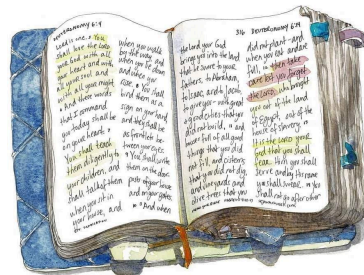 DEUTERONOMY 6:4
LORD is one. 5 You
shall love the LORD
your God with all
your heart and with
all your soul and
with all your might.
6 And these words
that I command
you today shall be
on your heart. 7
You shall teach
them diligently to
your children, and
shall talk of them
when you sit in
your house, and
when you walk
by the way, and
when you lie down,
and when you
rise. 8 You shall
bind them as a
sign on your hand,
and they shall be
as frontlets be-
tween your eyes.
9 You shall write
them on the door
posts of your house
and on your gates.
10 And when
the LORD your God
brings you into the land
that he swore to your
fathers, to Abraham,
to Isaac, and to Jacob,
to give you - with great
and good cities that you
did not build, 11 and
houses full of all good
things that you did
not fill, and cisterns
that you did not dig,
and vineyards and
olive trees that you
316 DEUTERONOMY
did not plant - and
when you eat and are
full, 12 then take
care lest you forget
the LORD, who brought
you out of the land
of Egypt, out of the
house of slavery. 13
It is the LORD your
God that you shall
fear. Him you shall
serve and by his name
you shall swear. 14 You
shall not go after other